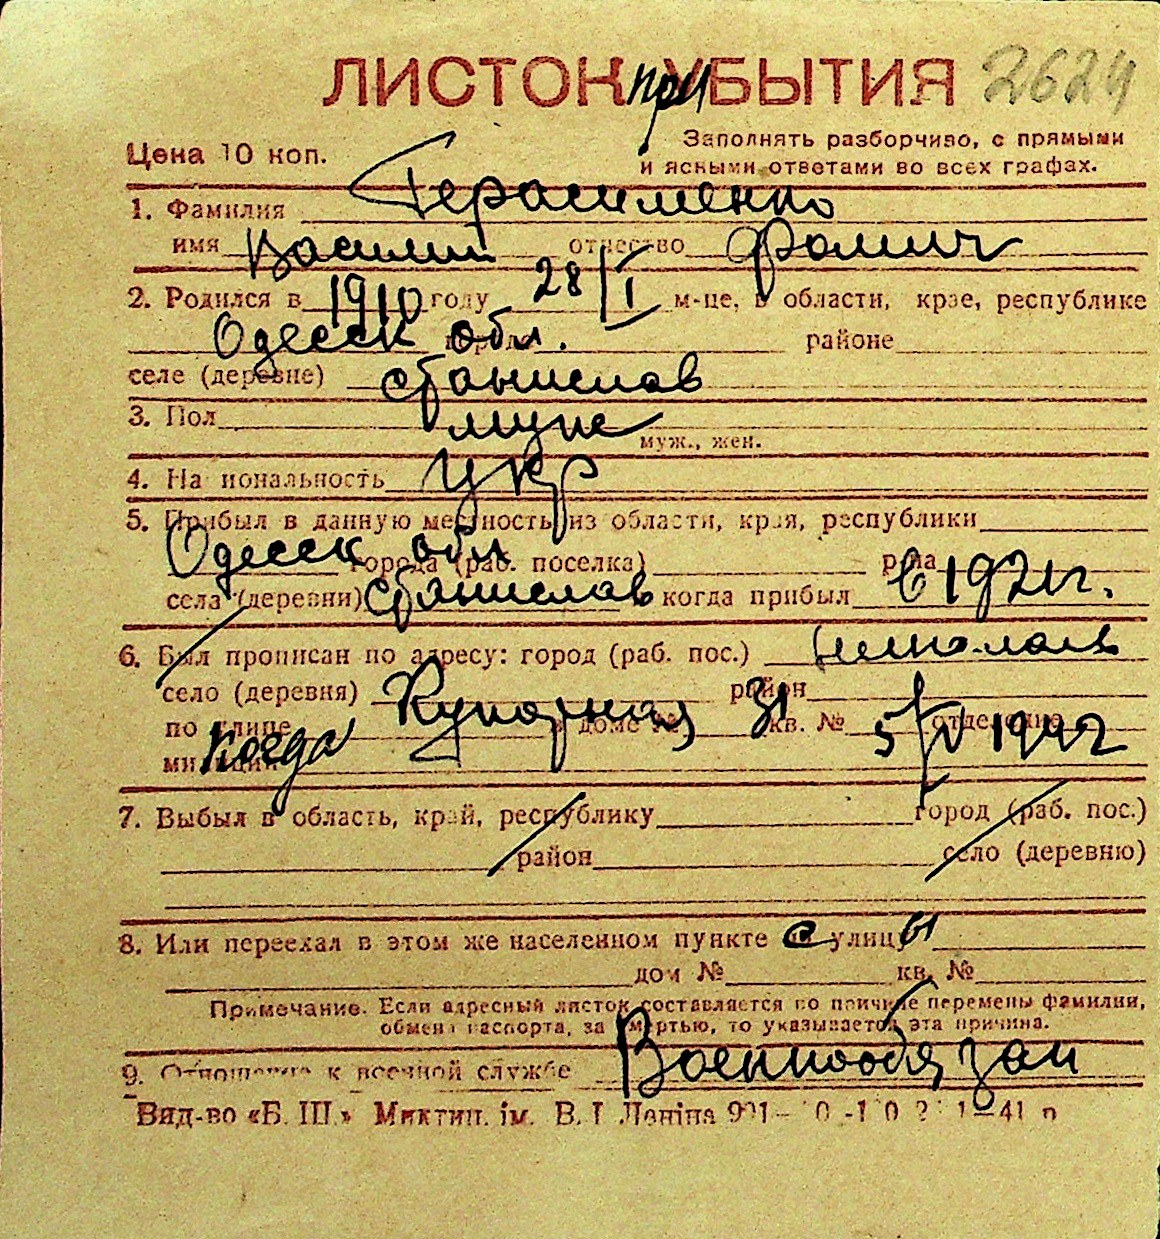 ЛИСТОК при УБЫТИЯ 2624
Цена 10 коп.
Заполнять разборчиво, с прямыми
и ясными ответами во всех графах.
1. Фамилия Герасименко
имя Василий отчество Фомич
2. Родился в 1910 году 28/I м-це, в области, крае, республике
Одесск обл. города районе
селе (деревне) Станислав
3. Пол муж
муж., жен.
4. Национальность укр
5. Прибыл в данную местность из области, края, республики
Одесск обл города (раб. поселка) р-на
села (деревни) Станислав когда прибыл в 1921 г.
6. Был прописан по адресу: город (раб. пос.) Николаев
село (деревня) район
по улице в доме № 31 кв. № отделение
милиции когда 5/V 1942
7. Выбыл в область, край, республику город (раб. пос.)
район село (деревню)
8. Или переехал в этом же населенном пункте с улицы
дом № кв. №
Примечание. Если адресный листок составляется по причине перемены фамилии,
обмена паспорта, за смертью, то указывается эта причина.
9. Отношение к военной службе Военнообязан
Вид-во «Б. Ш.» Миктип. ім. В. І. Леніна